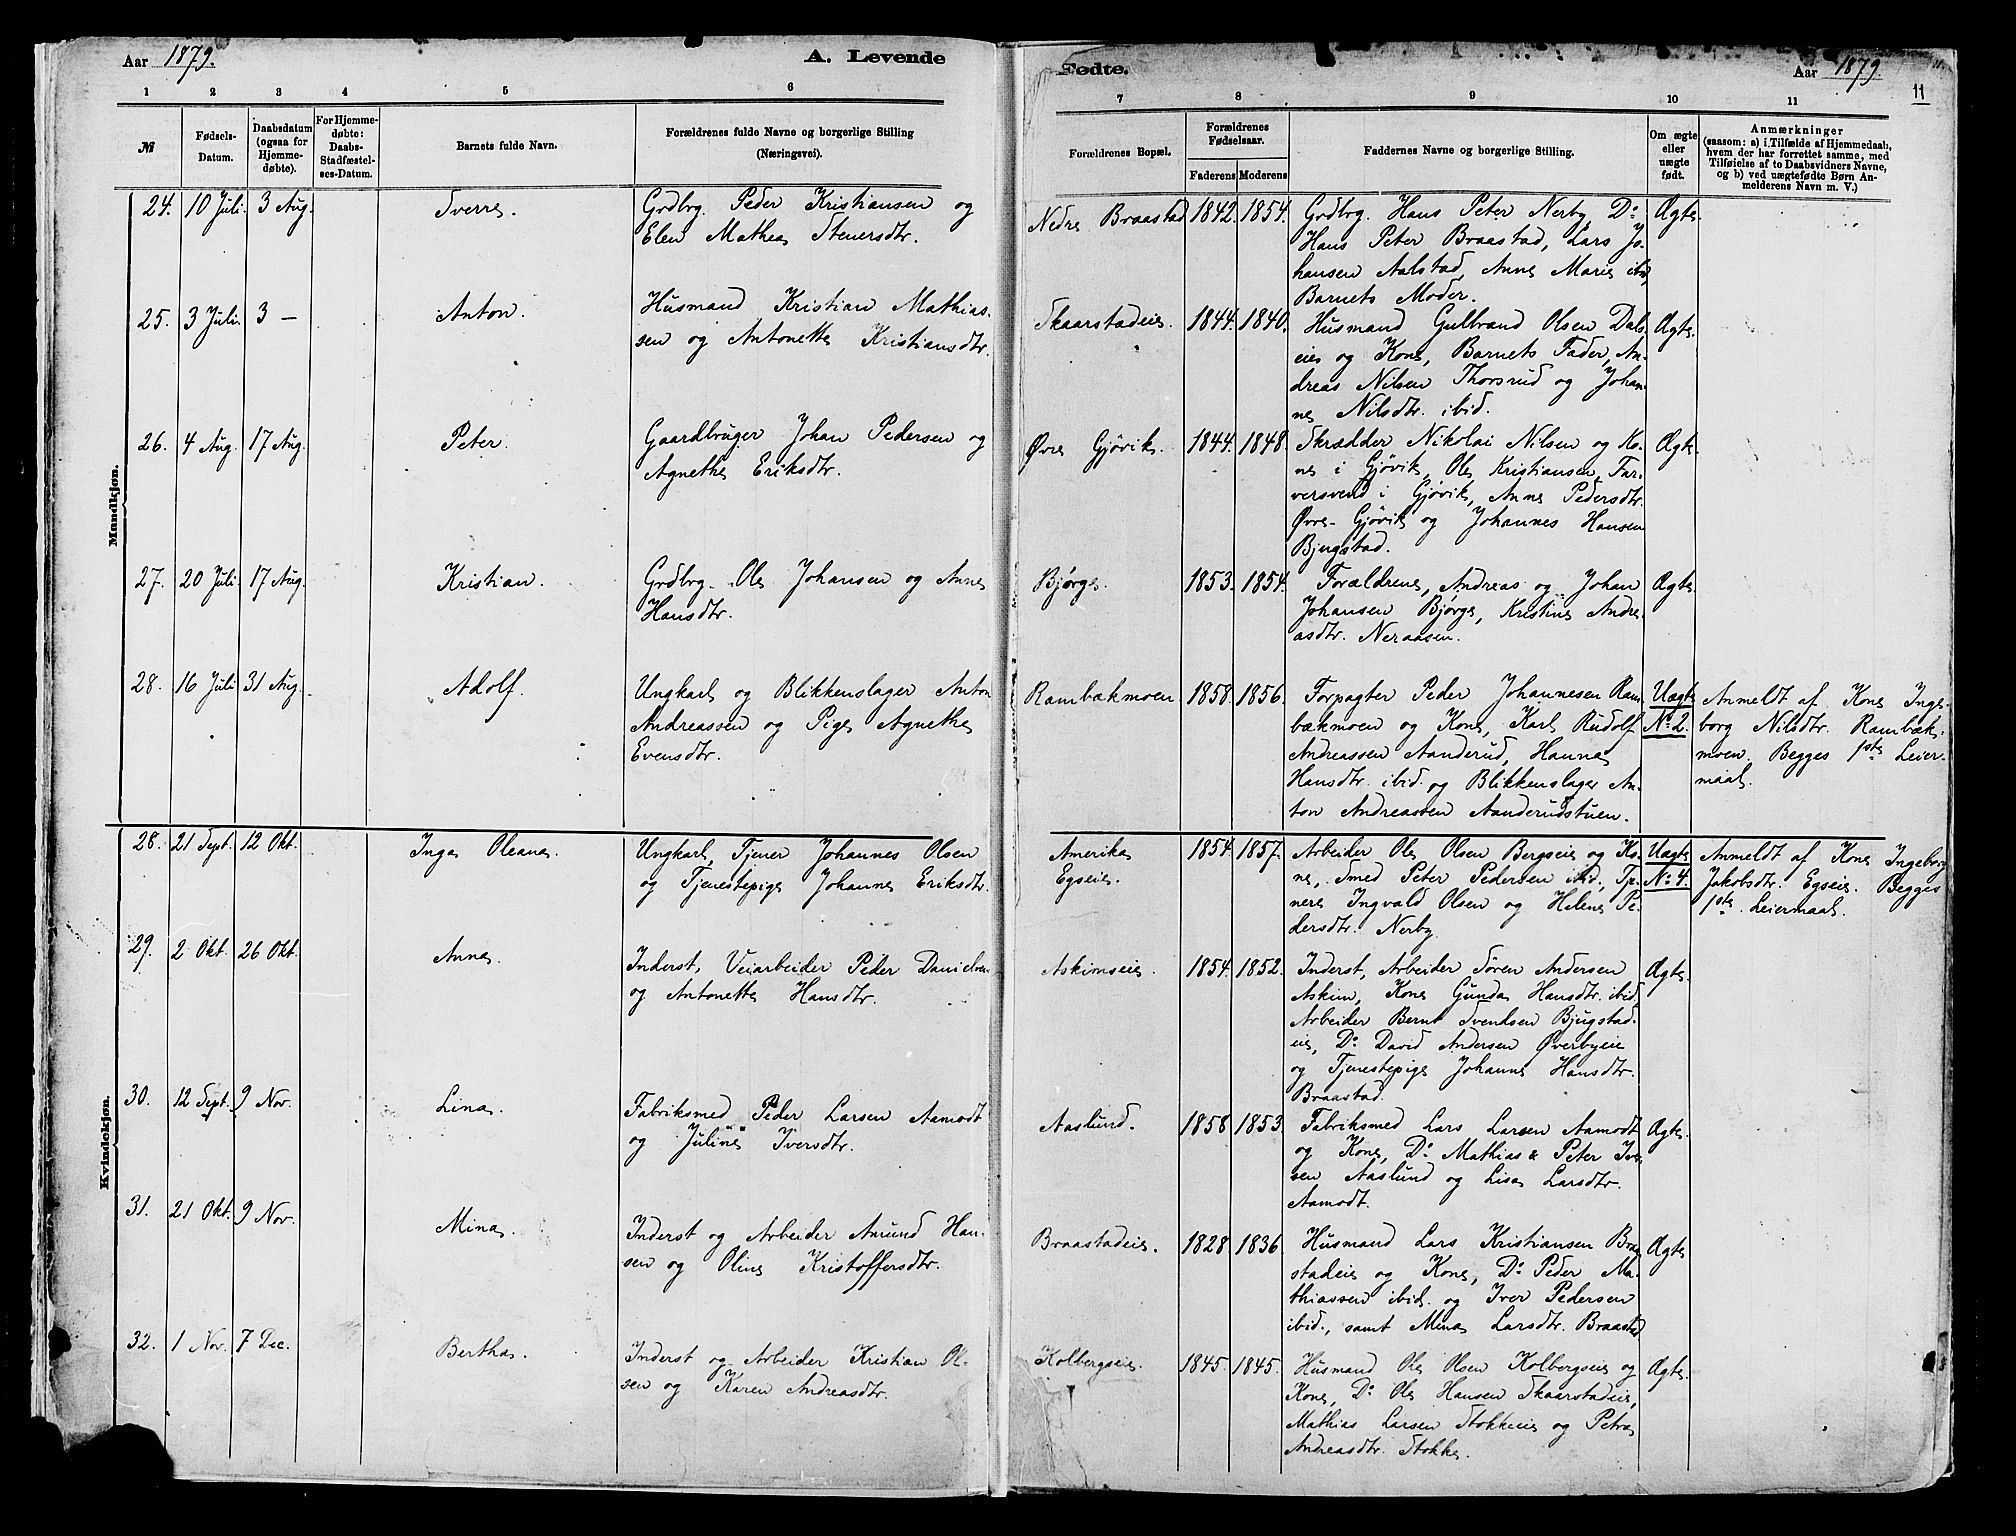 Aar 1879. A. Levende
1 2 3 4 5 6
№ Fødsels-Datum. Daabsdatum (ogsaa for Hjemmedøbte). For Hjemmedøbte: Daabs-Stadfæstelses-Datum. Barnets fulde Navn. Forældrenes fulde Navne og borgerlige Stilling (Næringsvei).
Mandkjøn.
24. 10 Juli 3 Aug. Sverre. Grdbrg. Peder Kristiansen og
Elen Mathea Stenersdtr.
25. 3 Juli. 3 — Anton. Husmand Kristian Mathias-
sen og Antonette Kristiansdtr.
26. 4 Aug. 17 Aug. Peter. Gaardbruger Johan Pedersen og
Agnethe Eriksdtr.
27. 20 Juli 17 Aug. Kristian. Grdbrg. Ole Johansen og Anne
Hansdtr.
28. 16 Juli 31 Aug. Adolf. Ungkarl og Blikkenslager Anton
Andreassen og Pige Agnethe
Evensdtr.
Kvindekjøn.
28. 21 Sept. 12 Okt. Inga Oleane. Ungkarl, Tjener Johannes Olsen
og Tjenestepige Johanne Eriksdtr.
29. 2 Okt. 26 Okt. Anne. Inderst, Veiarbeider Peder Danielsen
og Antonette Hansdtr.
30. 12 Sept. 9 Nov. Lina. Fabriksmed Peder Larsen Aamodt
og Juline Iversdtr.
31. 21 Okt. 9 Nov. Mina. Inderst og Arbeider Amund Han-
sen og Oline Kristoffersdtr.
32. 1 Nov. 7 Dec. Bertha. Inderst og Arbeider Kristian Ol-
sen og Karen Andreasdtr.
Fødte. Aar 1879. 11
7 8 9 10 11
Forældrenes Bopæl. Forældrenes Fødselsaar. Faderens Moderens Faddernes Navne og borgerlige Stilling. Om ægte eller uægte født. Anmærkninger
(saasom: a) i Tilfælde af Hjemmedaab,
hvem der har forrettet samme, med
Tilføielse af to Daabsvidners Navne,
og b) ved uægtefødte Børn An-
melderens Navn m. V.)
Nedre Braastad 1842. 1854. Grdbrg. Hans Peter Nerby, Do Ægte.
Hans Peter Braastad, Lars Jo-
hansen Aalstad, Anne Marie ibid,
Barnets Moder.
Skaarstadeie. 1844. 1840. Husmand Gulbrand Olsen Dals- Ægte.
eie og Kone, Barnets Fader, An-
dreas Nilsen Thorsrud og Johan-
ne Nilsdtr. ibid.
Øvre Gjövik. 1844. 1848. Skrædder Nikolai Nilsen og Ko- Ægte.
ne i Gjövik, Ole Kristiansen, Far-
versvend i Gjövik, Anne Pedersdtr.
Øvre-Gjövik og Johannes Hansen
Bjugstad.
Bjørge. 1853. 1854. Forældrene, Andreas og Johan Ægte.
Johansen Bjørge, Kristine Andre-
asdtr. Neraasen.
Rambækmoen 1858. 1856. Forpagter Peder Johannesen Ram- Uægte Anmeldt af Kone Inge-
bækmoen og Kone, Karl Rudolf No 2. borg Nilsdtr. Rambæk-
Andreassen Aanderud, Hanna moen. Begges 1ste Leier-
Hansdtr. ibid. og Blikkenslager An- maal.
ton Andreassen Aanderudstuen.
Amerika 1854. 1857. Arbeider Ole Olsen Bergseie og Ko- Uægte Anmeldt af Kone Ingeborg
Egseie. ne, Smed Peter Pedersen ibid., Tje- No 4. Jakobsdtr. Egseie. Begges
nere Ingvald Olsen og Helene Pe- 1ste Leiermaal.
dersdtr. Nerby.
Askimseie. 1854. 1852. Inderst, Arbeider Sören Andersen Ægte
Askim, Kone Gunda Hansdtr. ibid,
Arbeider Bernt Svendsen Bjugstad-
eie, Do David Andersen Øverbyeie
og Tjenestepige Johanne Hansdtr.
Braastad.
Aaslund. 1858 1853. Fabriksmed Lars Larsen Aamodt Ægte.
og Kone, Do Mathias & Peter Iver-
sen Aaslund og Lisa Larsdtr.
Aamodt.
Braastadeie. 1828 1836. Husmand Lars Kristiansen Braa- Ægte
stadeie og Kone, Do Peder Ma-
thiassen ibid. og Iver Pedersen
ibid., samt Mina Larsdtr. Braastad
Kolbergseie. 1845. 1845. Husmand Ole Olsen Kolbergseie og Ægte.
Kone, Do Ole Hansen Skaarstadeie,
Mathias Larsen Stokkeeie og Petra
Andreasdtr. Stokke.